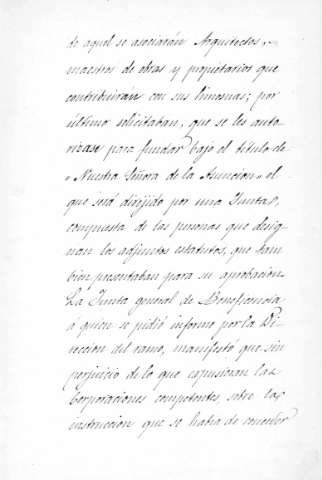 de aquel se asociarán Arquitectos,
maestros de obras y propietarios que
contribuirán con sus limosnas; por
último solicitaban, que se les auto-
rizase para fundar bajo el título de
"Nuestra Señora de la Asuncion" el
que será dirijido por una Junta,
compuesta de las personas que desig-
nan los adjuntos estatutos, que tam
bien presentaban para su aprobacion.
La Junta general de Beneficencia
á quien se pidió informe por la Di-
reccion del ramo, manifestó que sin
perjuicio de lo que espusieran las
Corporaciones competentes, sobre la
instruccion que se habia de conceder